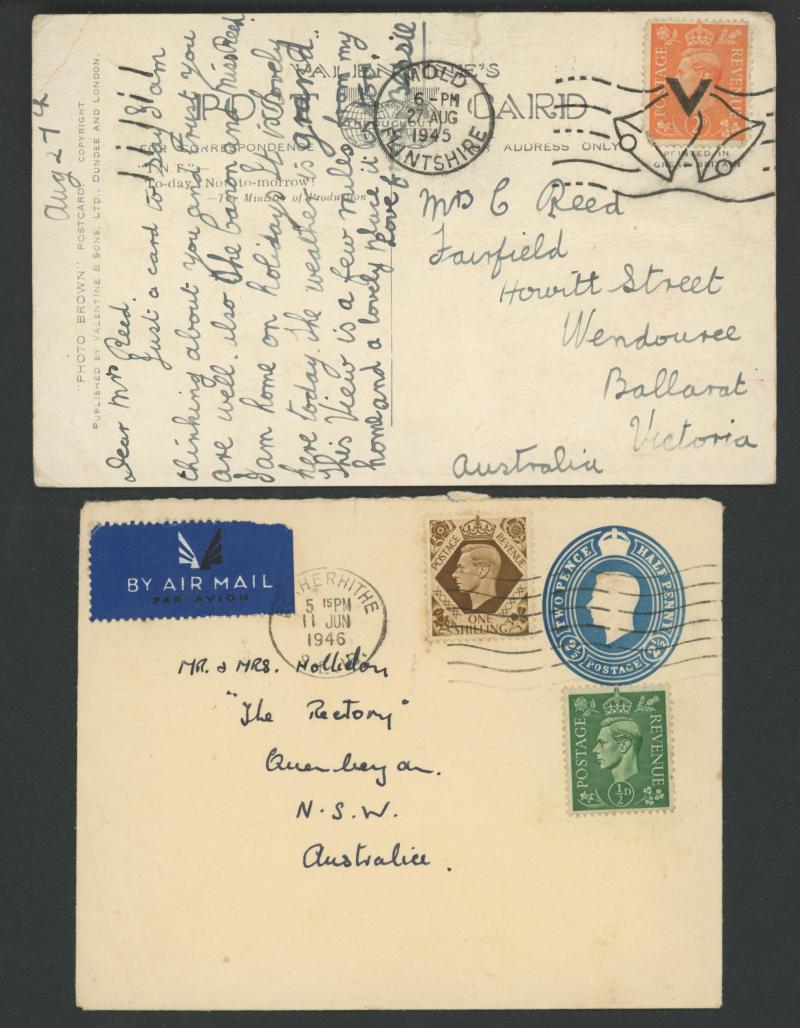 VALENTINE'S
POST CARD
FOR CORRESPONDENCE
ADDRESS ONLY
PRINTED IN
GREAT BRITAIN
To-day! Not to-morrow!
The Ministry of Production
"PHOTO BROWN" POSTCARD COPYRIGHT.
PUBLISHED BY VALENTINE & SONS, LTD., DUNDEE AND LONDON.
Aug 27th
Dear Mrs Reed.
Just a card to say I am
thinking about you and trust you
are well. also the Canon and Miss Reed
I am home on holidays It is lovely
here today. The weather is grand..
This View is a few miles from my
home and a lovely place it
Love f
MOLD
6 - PM
27 AUG
1945
FLINTSHIRE
V
POSTAGE
REVENUE
2D
Mrs C Reed
Fairfield
Howitt Street
Wendouree
Ballarat
Victoria
Australia
BY AIR MAIL
PAR AVION
5 15PM
11 JUN
1946
POSTAGE
REVENUE
ONE
SHILLING
TWO PENCE HALF PENNY
2½ POSTAGE 2½
POSTAGE
REVENUE
½D
Mr. & Mrs. Hollidon
"The Rectory"
Queanbeyan.
N.S.W.
Australia.